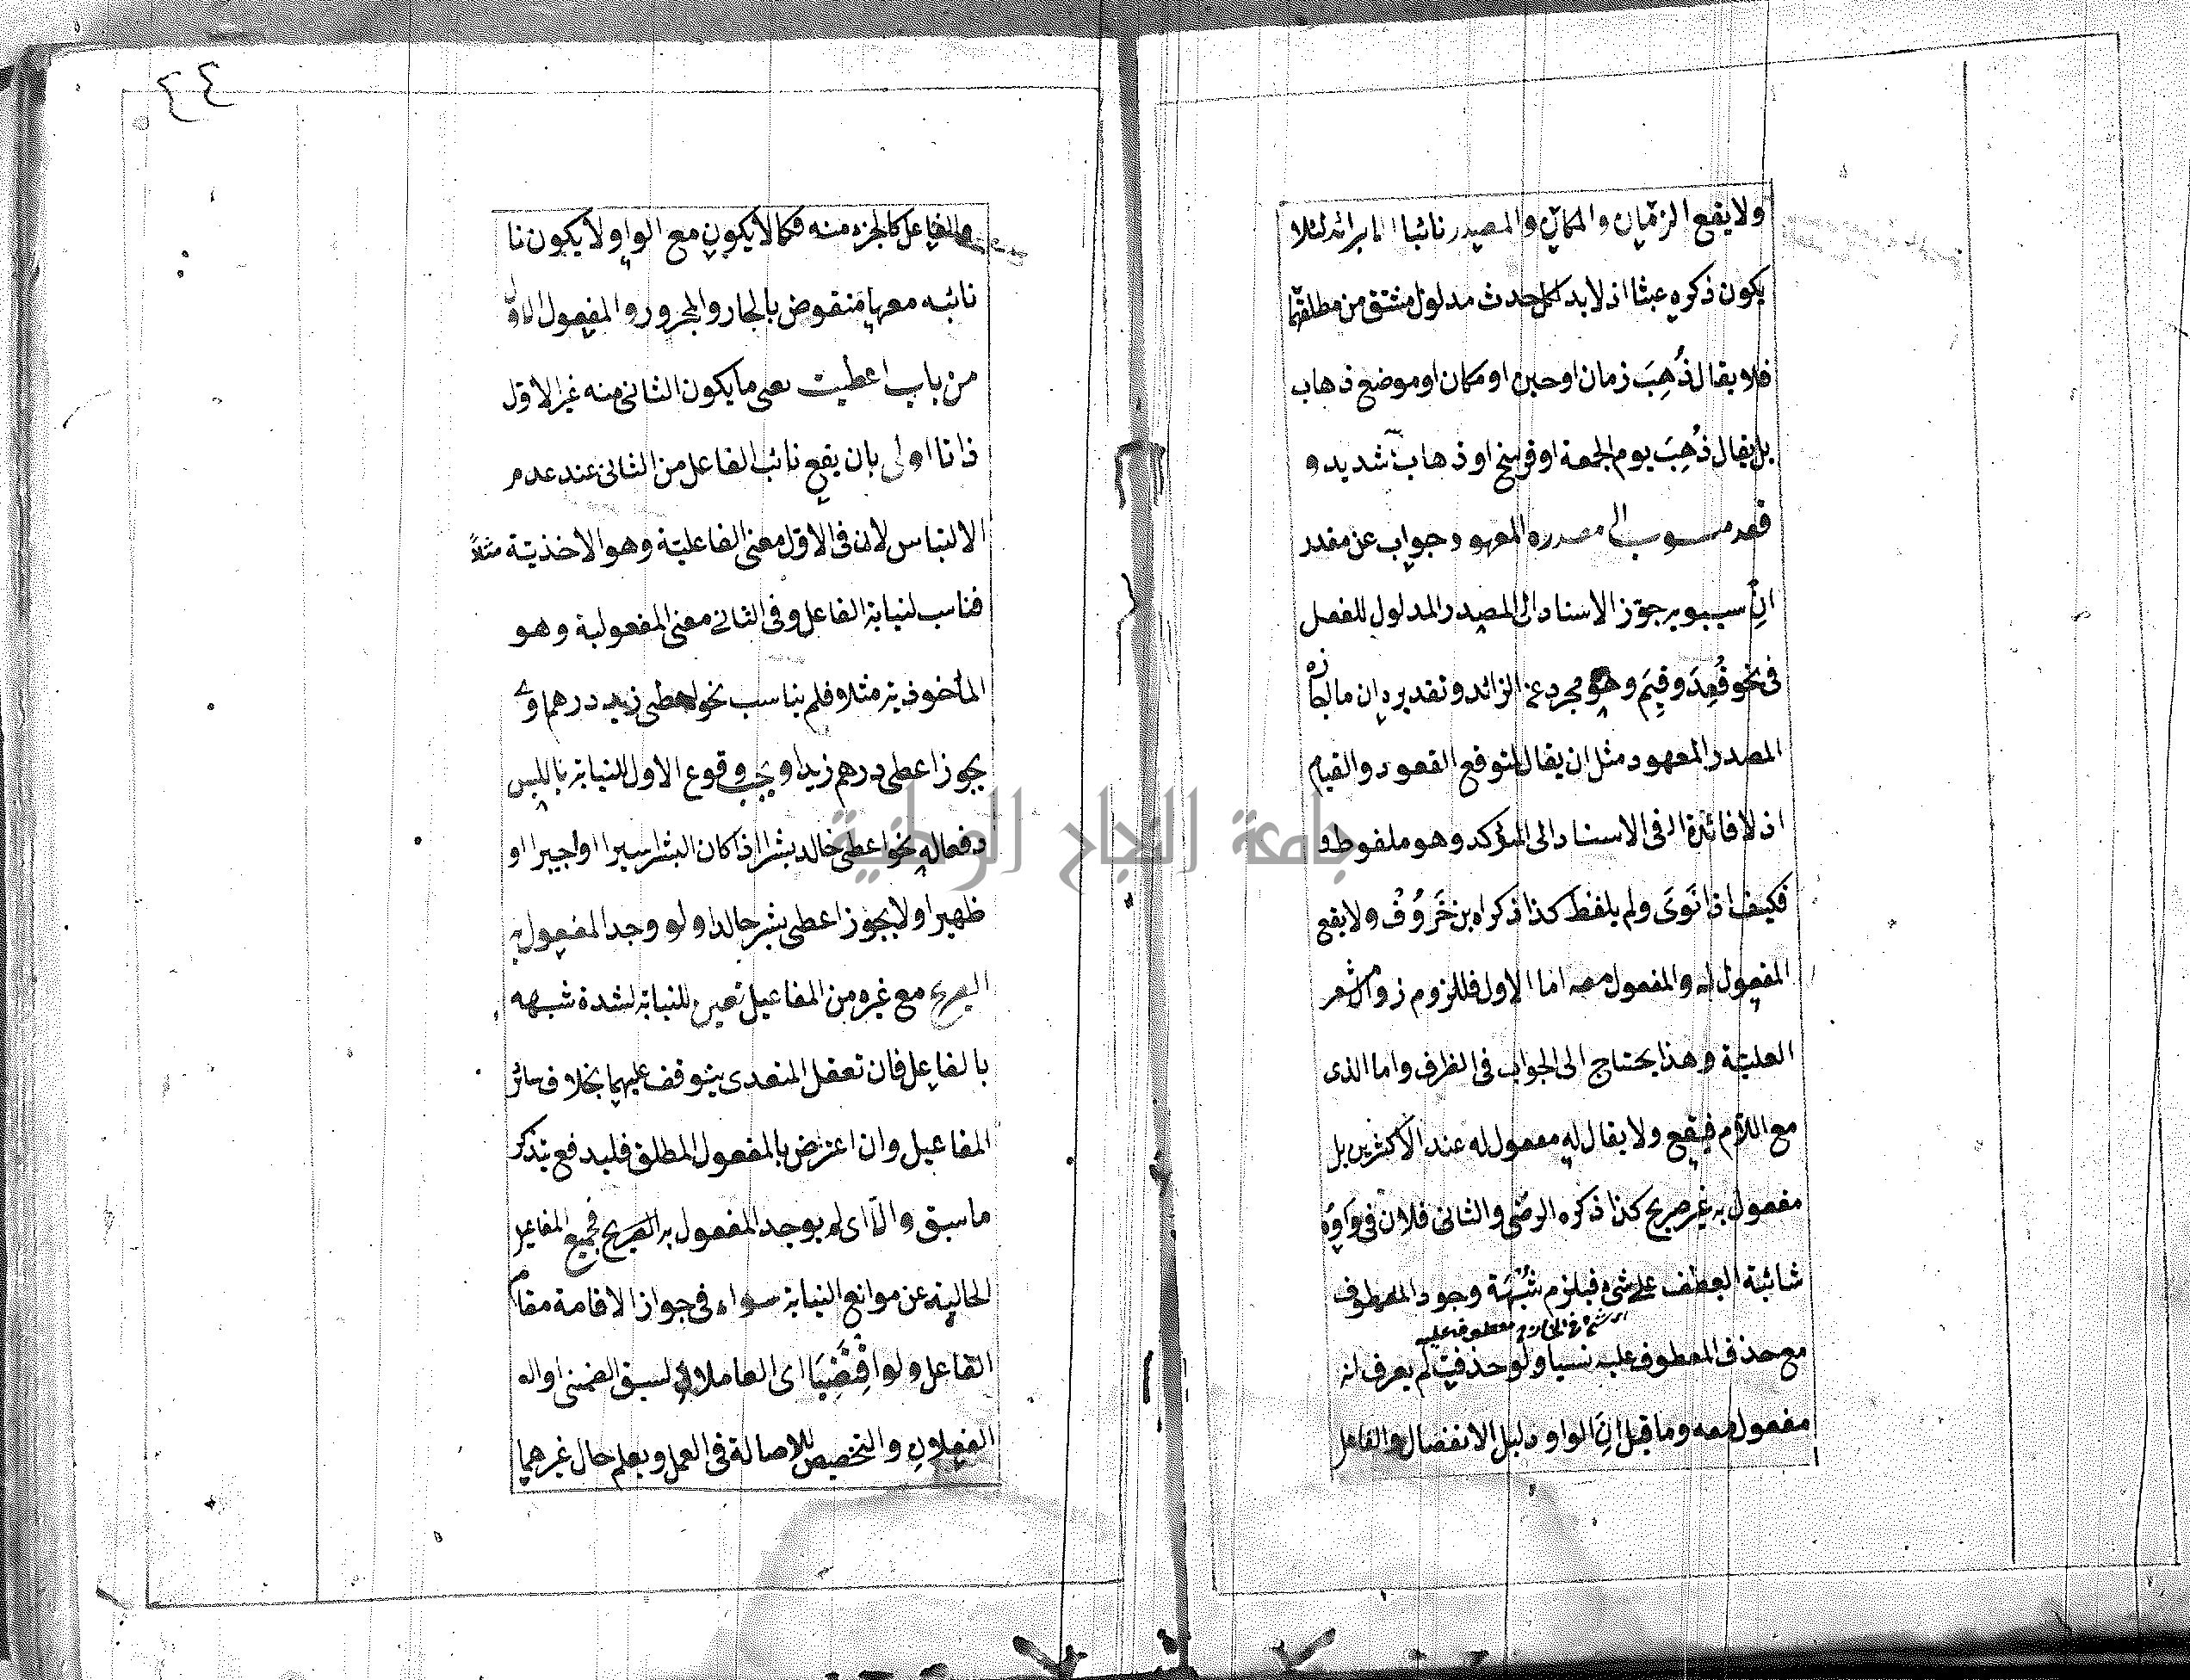 ولا يقع الزمان والمكان والمصدر نائبا الا بزائد لئلا
يكون ذكره عبثا اذ لا بد لكل حدث مدلول مشتق من مطلقها
فلا يقال ذُهِبَ زمان او حين او مكان او موضع ذهاب
بل يقال ذُهِبَ يوم الجمعة او فرسخ او ذهاب شديد و
الى مصدره المعهود جواب عن مقدر
انّ سيبويه جوّز الاسناد الى المصدر المدلول للفعل
فى نحو قُعِدَ وقِيمَ وهو مجرد عن الزائد وتقديره ان ما لجازه
المصدر المعهود مثل ان يقال لمتوقع القعود والقيام
اذ لا فائدة فى الاسناد الى المؤكد وهو ملفوظ و
فكيف اذا نَوَى ولم يلفظ كذا ذكراه بن خَرُوُفْ ولا يقع
المفعول له والمفعول معه اما الاول فللزوم زوال مشعر
العليّة وهذا يحتاج الى الجواب فى الظرف واما الذى
مع اللام فيقع ولا يقال له مفعول له عند الاكثرين بل
مفعول به غير صريح كذا ذكره الرضى والثانى فلان فى واوه
شائبة العطف على شىء فيلزم شُبْهَة وجود المعطوف
معطوف عليه
مع حذف المعطوف عليه نسيا ولو حذفت لم يعرف انه
مفعول معه وما قيل انّ الواو دليل الانفصال والفاعل
والفاعل كالجزء منه فكما لا يكون مع الواو لا يكون نا
نائبه معها منقوض بالجار والمجرور والمفعول الاول
من باب اعطيت يعنى ما يكون الثانى منه غير الاول
ذاتا اولى بان يقع نائب الفاعل من الثانى عند عدم
الالتباس لان فى الاول معنى الفاعليّة وهو الاخذيّة مثلاً
فناسب لنيابة الفاعل وفى الثانى معنى المفعولية وهو
المأخوذية مثلا فلم يناسب نحو اعطى زيد درهما و
يجوز اعطى درهم زيدا ويجب وقوع الاول للنيابة باللبس
دفعا له نحو اعطى خالد بشرا اذا كان البشر اسيرا او اجيرا او
ظهيرا ولا يجوز اعطى بشر خالدا ولو وجد المفعول به
الصريح مع غيره من المفاعيل تعين للنيابة لشدة شبهه
بالفاعل فان تعقل المتعدى يتوقف عليهما بخلاف سائر
المفاعيل وان اعترض بالمفعول المطلق فليدفع بتذكر
ما سبق والّا اى لم يوجد المفعول به الصريح فجميع المفاعيل
الخالية عن موانع النيابة سواء فى جواز الاقامة مقام
الفاعل ولو اقْتَضَيَا اى العاملان لسبق الضمنى او اله
الفعلان والتخصيص للاصالة فى العمل ويعلم حال غيرهما